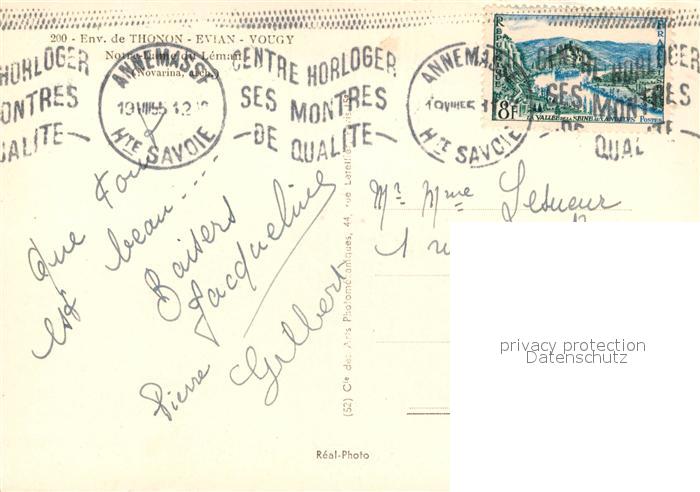 200 - Env. de THONON - EVIAN - VOUGY
Notre-Dame du Léman
(Novarina, arch.)
HORLOGER
MONTRES
QUALITE
ANNEMASSE
HTE SAVOIE
CENTRE HORLOGER
SES MONTRES
DE QUALITE
ANNEMAS
HTE SAVOIE
HORLOGER
SES MONTRES
DE QUAL
8F
LA VALLÉE DE LA SEINE AUX ANDELYS POSTES
Que tout
est beau....
Baisers
Jacqueline
Pierre Gilbert
(52) Cie des Arts Photomécaniques, 44, rue Letellier
Mr Mme Lesueur
1 r
Réal-Photo
privacy protection
Datenschutz